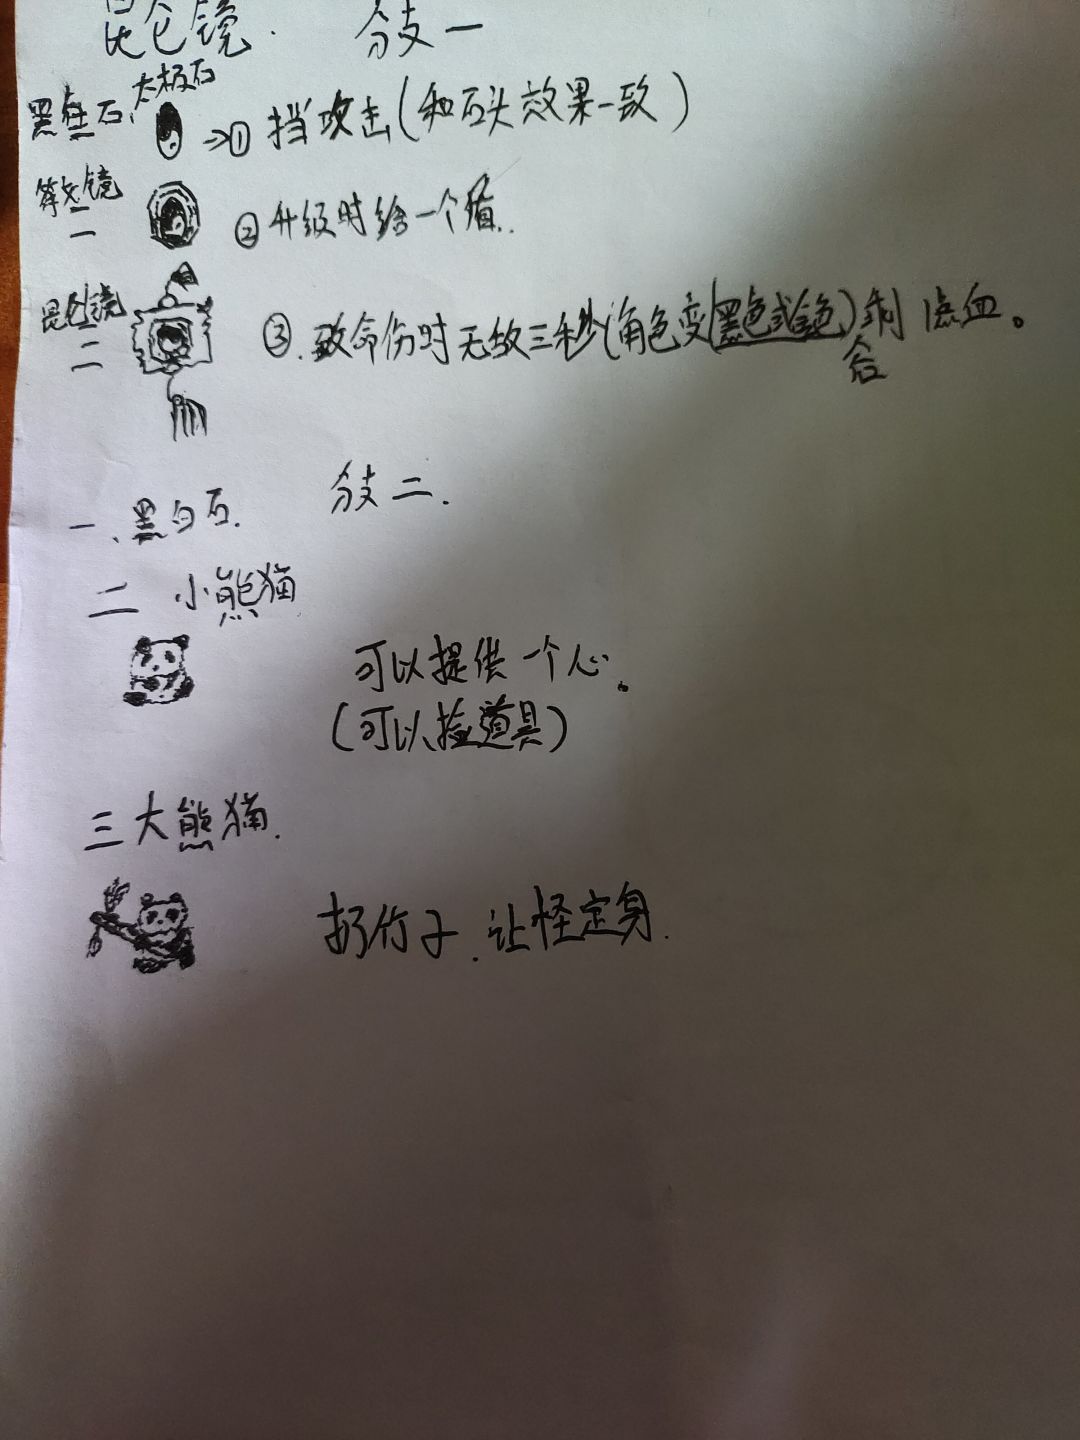 昆仑镜. 分支一
太极石
黑白石
→① 挡攻击(和石头效果一致)
镜
二
②升级时给一个盾..
昆仑镜
三
③.致命伤时无敌三秒(角色变黑色或金色)剩1点血。
分支二.
一、黑白石.
二 小熊猫
可以提供一个心。
(可以捡道具)
三大熊猫.
扔竹子.让怪定身.